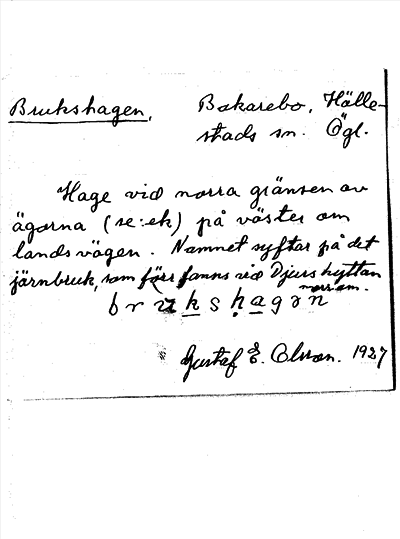 Brukshagen. Bakarebo, Hälle-
stads sn. Ögl.
Hage vid norra gränsen av
ägorna (se: ek) på väster om
landsvägen. Namnet syftar på det
järnbruk, som förr fanns vid Djurshyttan
norr om.
Gustaf E. Olsson. 1927